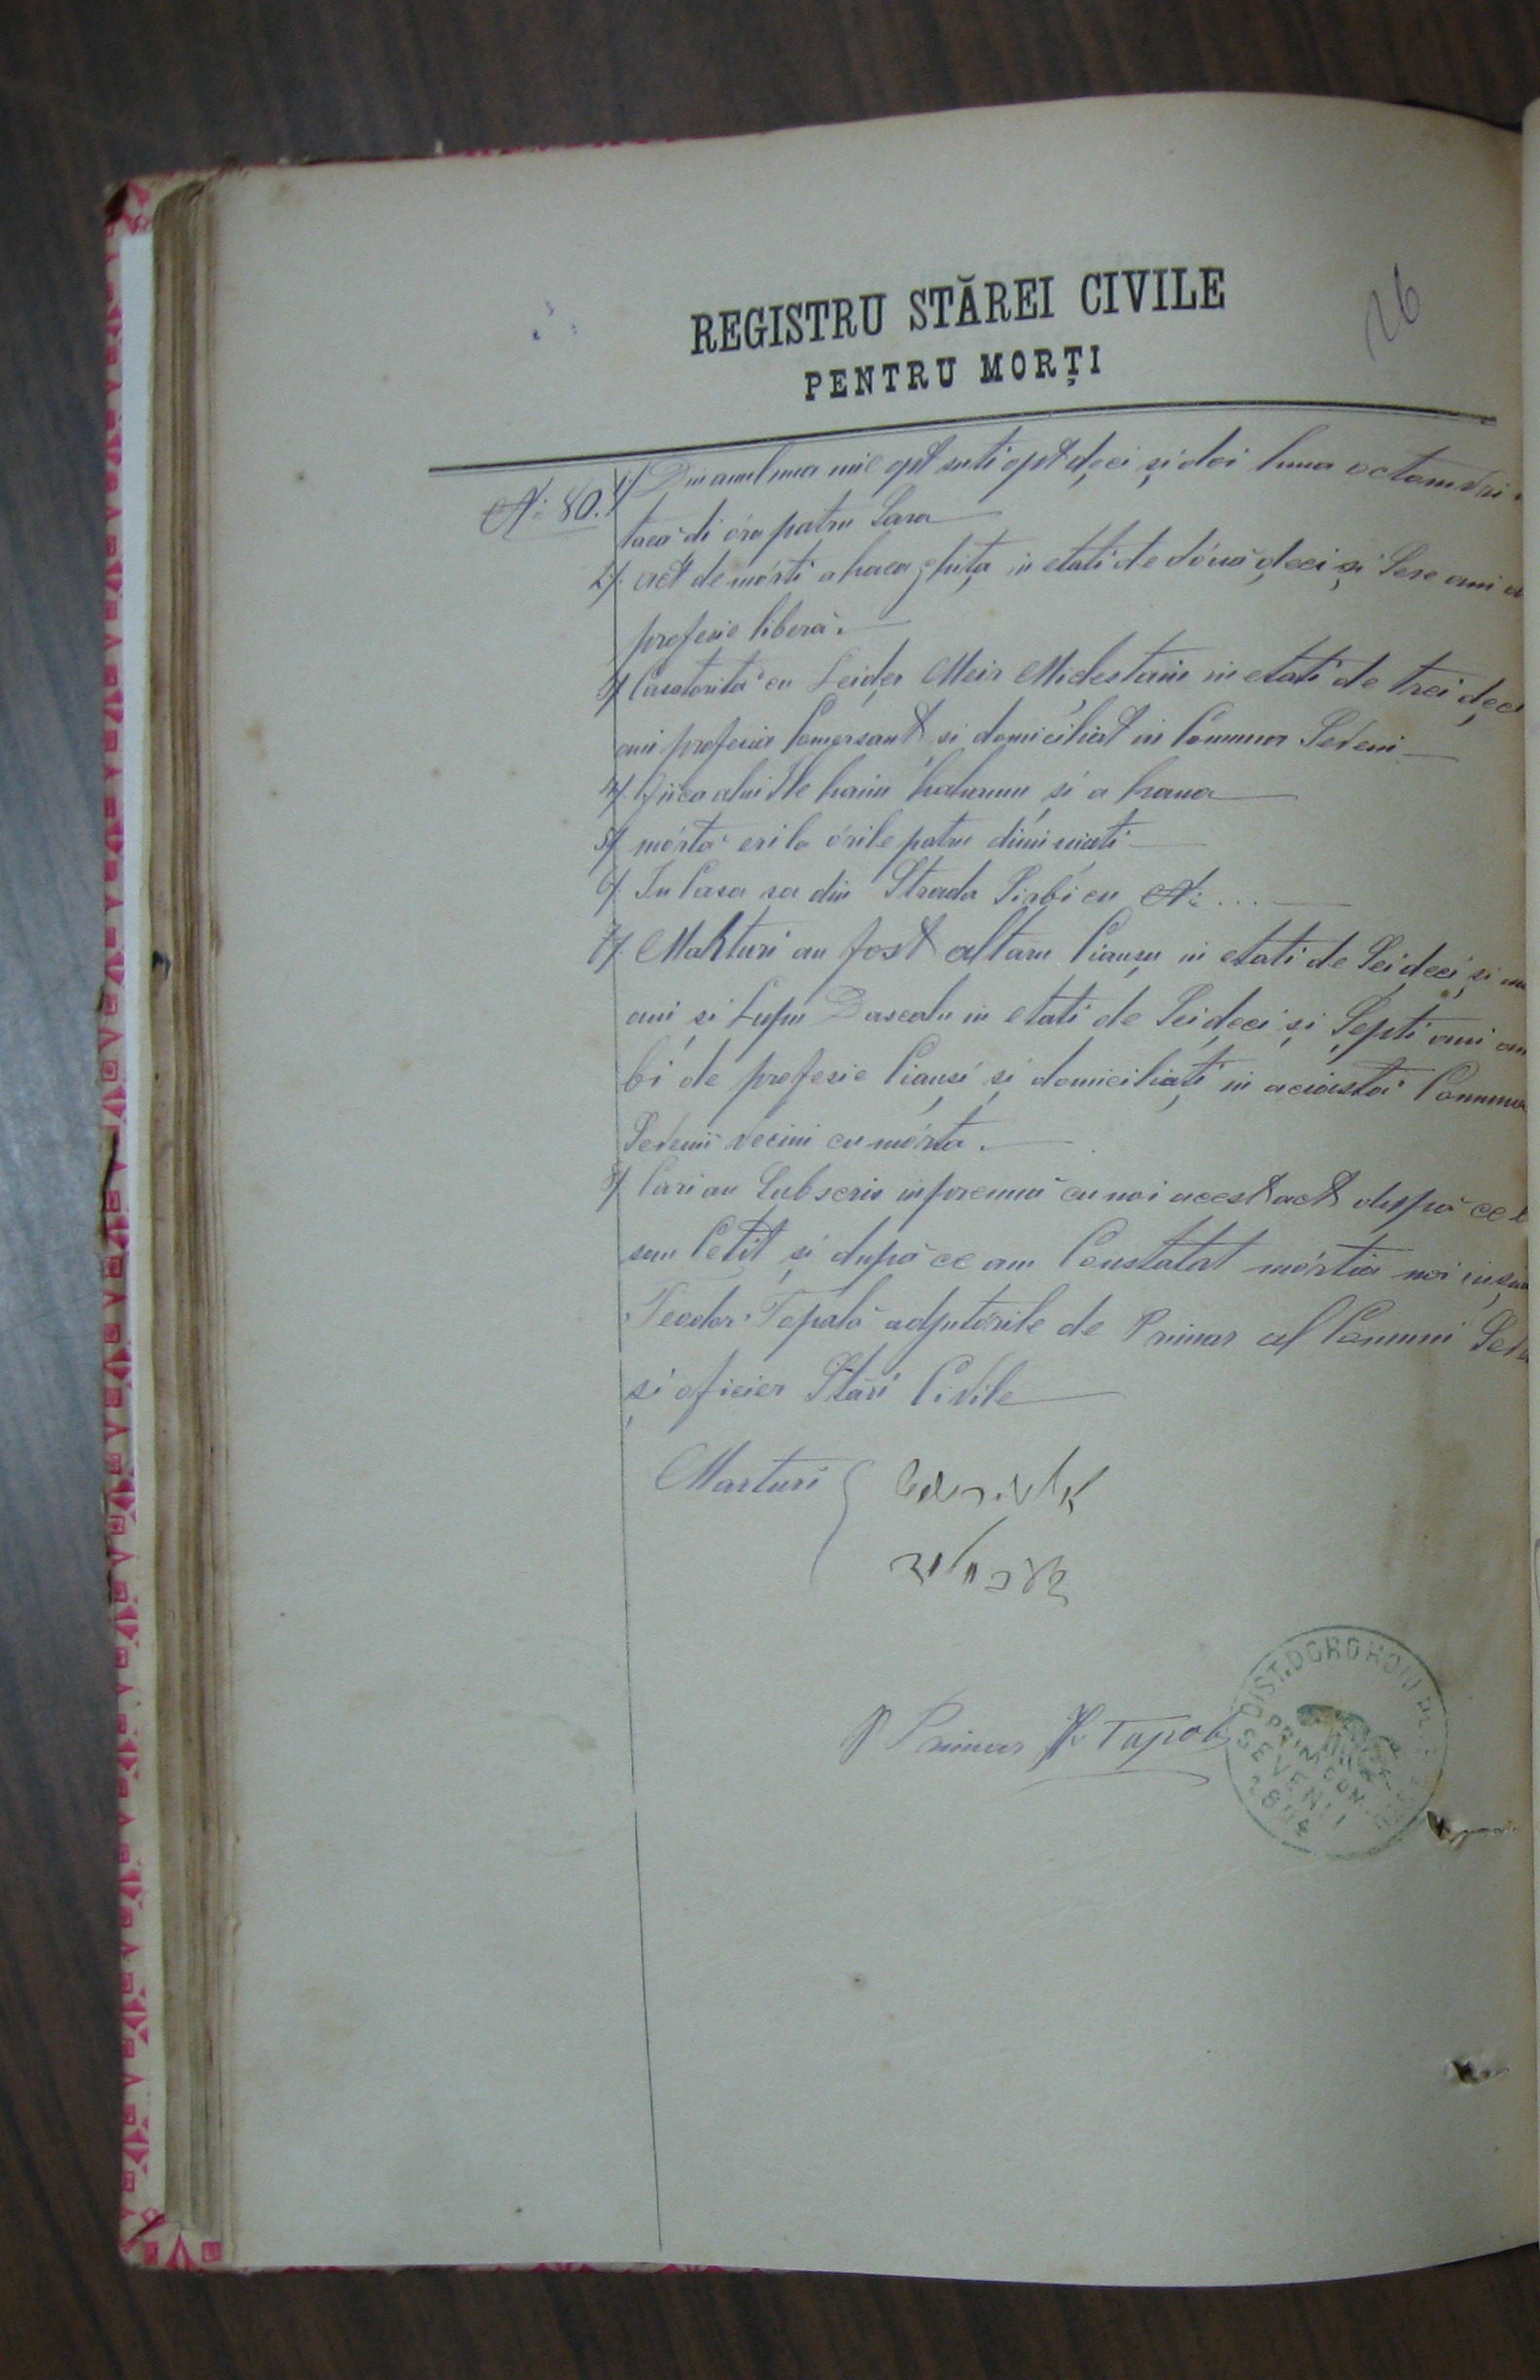 REGISTRU STĂREI CIVILE
PENTRU MORȚI
26
No 80.
1) Din anul una mie opt suti opt deci și doi luna octomvri
di óra patru Sara
2) act de mórti a haea ghița in etati de dóuă deci și Sese ani
profesie liberă.
3) Casatorită cu Leider Meir in etati de trei deci
ani profesia Comersant și domiciliat in Comuna Seveni
4) fiica alui Ile haim și a hana
5) mórtă eri la órile patru dimineati
6) In Casa sa din Strada Sirbi cu No ...
7) Marturi au fost altăr Ciausu in etati de Sei deci și
ani și Lupu Dascalu in etati de Sei deci și Septi ani am
bi de profesie Ciausi și domiciliați in aciastă Comuna
Sevenii vecini cu mórta.
8) Cari au Subscris inpreună cu noi acest act dupo ce l
sau Cetit și dupo ce am Constatat mórtia noi insu
Teodor Topală adjutórile de Primar al Comuni Seve
și oficier Stări Civile
Marturi
p Primar
DIST. DOROHOIU PL.
PRIM. COM.
SEVENII